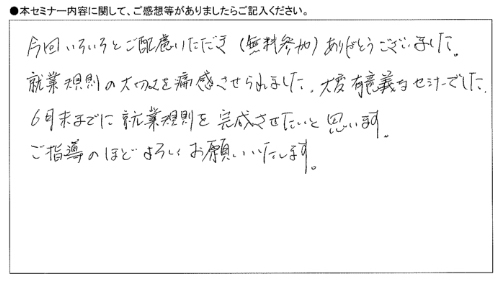 ●本セミナー内容に関して、ご感想等がありましたらご記入ください。
今回いろいろとご配慮いただき(無料参加)ありがとうございました。
就業規則の大切さを痛感させられました。大変有意義なセミナーでした。
6月末までに就業規則を完成させたいと思います。
ご指導のほどよろしくお願いいたします。